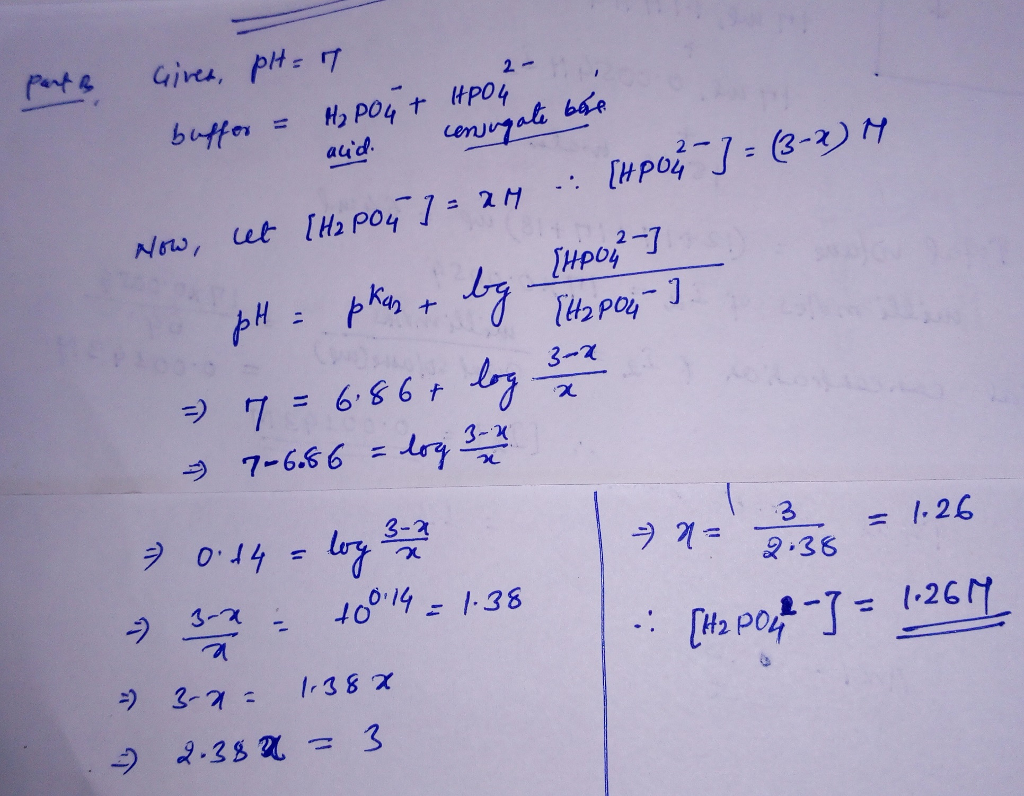 Part B, Given, pH = 7
buffer = H₂PO₄⁻ + HPO₄²⁻
acid. conjugate base
Now, let [H₂PO₄⁻] = x M ∴ [HPO₄²⁻] = (3-x) M
pH = pKa₂ + log [HPO₄²⁻] / [H₂PO₄⁻]
⇒ 7 = 6.86 + log 3-x / x
⇒ 7-6.86 = log 3-x / x
⇒ 0.14 = log 3-x / x
⇒ 3-x / x = 10^0.14 = 1.38
⇒ 3-x = 1.38 x
⇒ 2.38 x = 3
⇒ x = 3 / 2.38 = 1.26
∴ [H₂PO₄⁻] = 1.26 M